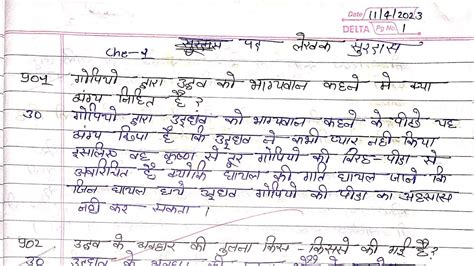 Date 11/4/2023
DELTA Pg No. 1
Che-1 सूरदास पद लेखक सूरदास
प्र01 गोपियो द्वारा उद्धव को भाग्यवान कहने मे क्या
व्यंग्य निहित है ?
उ0 गोपियो द्वारा उद्धव को भाग्यवान कहने के पीछे यह
व्यंग्य छिपा है कि उद्धव ने कभी प्यार नही किया
इसलिए वह कृष्ण से दूर गोपियो की विरह-पीडा से
अपरिचित है क्योकि घायल की गति घायल जाने कि
जिन घायल होये उद्धव गोपियो की पीडा का अहसास
नही कर सकता ।
प्र02 उद्धव के व्यवहार की तुलना किस - किससे की गई है ?
उ0 उद्धव के व्यवहार की तुलना